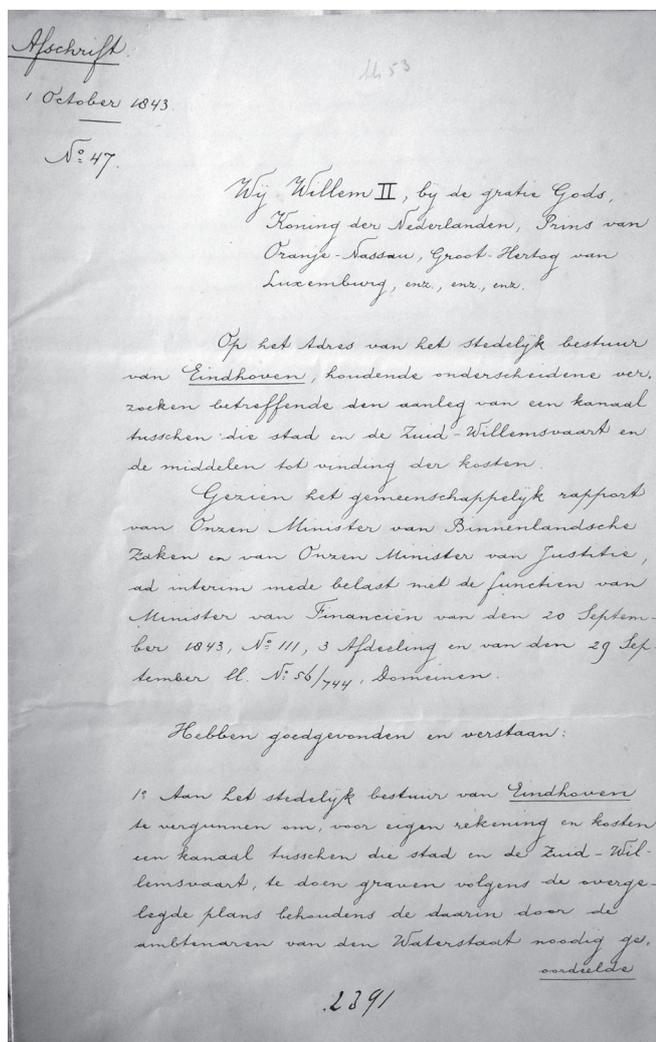 Afschrift.
1 October 1843.
No. 47.
Wij Willem II, bij de gratie Gods,
Koning der Nederlanden, Prins van
Oranje-Nassau, Groot-Hertog van
Luxemburg, enz., enz., enz.
Op het Adres van het stedelijk bestuur
van Eindhoven, houdende onderscheidene ver-
zoeken betreffende den aanleg van een kanaal
tusschen die stad en de Zuid-Willemsvaart en
de middelen tot vinding der kosten.
Gezien het gemeenschappelijk rapport
van Onzen Minister van Binnenlandsche
Zaken en van Onzen Minister van Justitie,
ad interim mede belast met de functien van
Minister van Financiën van den 20 Septem-
ber 1843, No. 111, 3 Afdeeling en van den 29 Sep-
tember ll. No. 56/744, Domeinen.
Hebben goedgevonden en verstaan:
1o Aan het stedelijk bestuur van Eindhoven
te vergunnen om, voor eigen rekening en kosten
een kanaal tusschen die stad en de Zuid-Wil-
lemsvaart, te doen graven volgens de overge-
legde plans behoudens de daarin door de
ambtenaren van den Waterstaat noodig ge-
oordeelde
2391